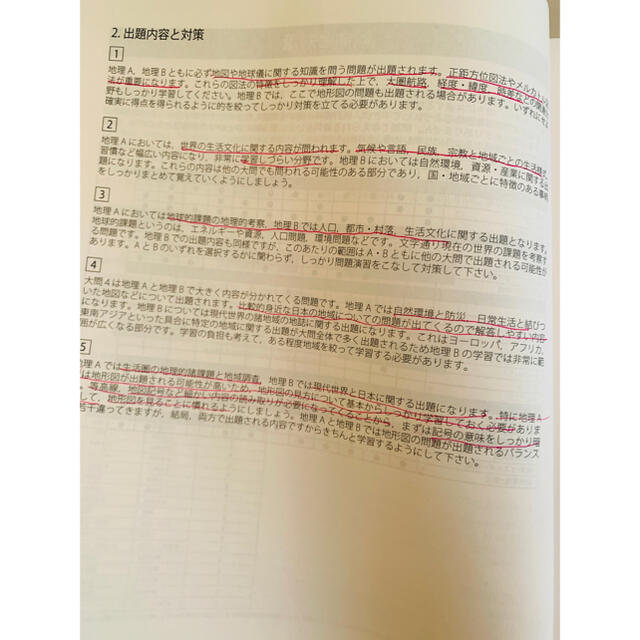 2. 出題内容と対策
1
地理A、地理Bともに必ず地図や地球儀に関する知識を問う問題が出題されます。正距方位図法やメルカトル
法が重要になります。これらの図法の特徴をしっかり理解した上で、大圏航路、経度・緯度、時差などの
野もしっかり学習してください。地理Bでは、ここで地形図の問題も出題される場合があります。いずれにせよ
確実に得点を得られるように的を絞ってしっかり対策を立てる必要があります。
2
地理Aにおいては、世界の生活文化に関する内容が問われます。気候や言語、民族、宗教と地域ごとの生活
習慣など幅広い内容になり、非常に学習しづらい分野です。地理Bにおいては自然環境、資源・産業に関する出
題になります。これらの内容は他の大問でも問われる可能性のある部分であり、国・地域ごとに特徴のある事
をしっかりまとめて覚えていくようにしましょう。
3
地理Aにおいては地球的課題の地理的考察、地理Bでは人口、都市・村落、生活文化に関する出題となります。
地球的課題というのは、エネルギーや資源、人口問題、環境問題などです。文字通り現在の世界の課題を考察す
る問題です。地理Bでの出題内容も同様ですが、このあたりの範囲はA・Bともに他の大問で出題される可能性が
あります。AとBのいずれを選択するかに関わらず、しっかり問題演習をこなして対策して下さい。
4
大問4は地理Aと地理Bで大きく内容が分かれてくる問題です。地理Aでは自然環境と防災、日常生活と結びつ
いた地図などについて出題されます。比較的身近な日本の地域についての問題が出てくるので解答しやすい内容
になります。地理Bについては現代世界の諸地域の地誌に関する出題になります。これはヨーロッパ、アフリカ、
東南アジアといった具合に特定の地域に関する出題が大問全体で多く出題されるため地理Bの学習では非常に範
囲が広くなる部分です。学習の負担も考えて、ある程度地域を絞って学習する必要があります。
5
地理Aでは生活圏の地理的諸課題と地域調査、地理Bでは現代世界と日本に関する出題になります。特に地理A
は地形図が出題される可能性が高いため、地形図の見方について基本からしっかり学習しておく必要がありま
。等高線、地図記号など細かい内容の読み取りが必要になってくることから、まずは記号の意味をしっかり暗
して、地形図を見ることに慣れるようにしましょう。地理Aと地理Bでは地形図の問題が出題されるバランス
若干違ってきますが、結局、両方で出題される内容ですからきちんと学習するようにして下さい。